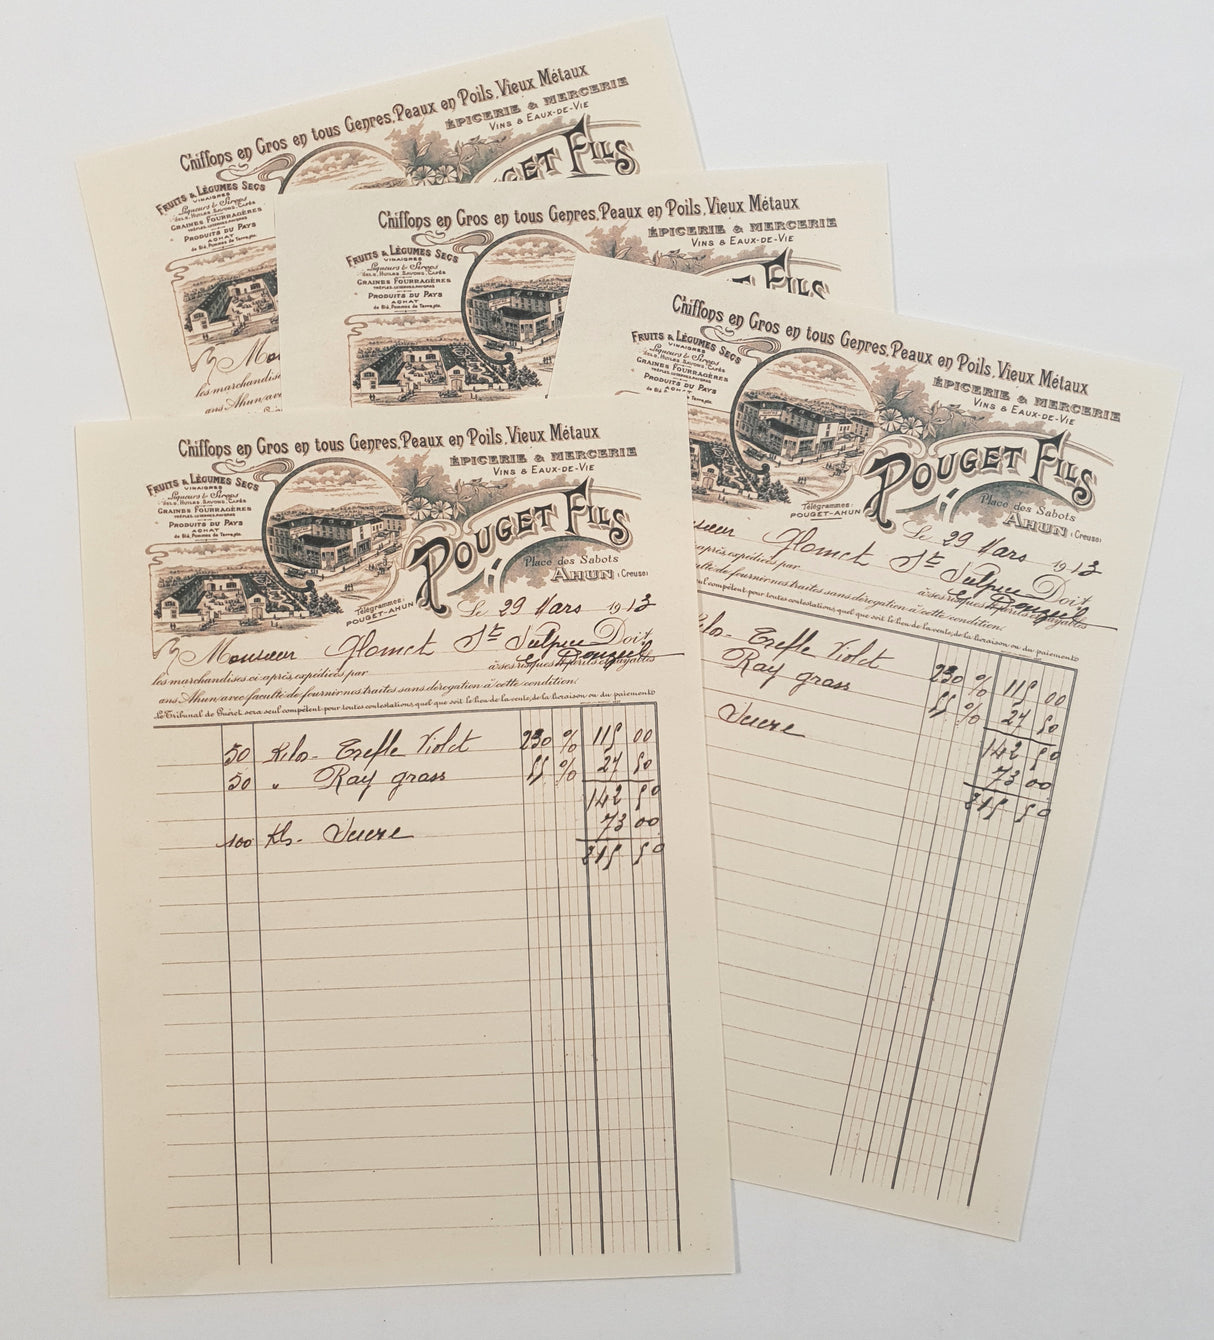 Chiffons en Gros en tous Genres, Peaux en Poils, Vieux Métaux
ÉPICERIE & MERCERIE
VINS & EAUX-DE-VIE
FRUITS & LÉGUMES SECS
VINAIGRES
Liqueurs & Sirops
SELS, HUILES, SAVONS, CAFÉS
GRAINES FOURRAGÈRES
PRODUITS DU PAYS
ACHAT
de Blé, Pommes de Terre, etc.
GET FILS
Mon
les marchandise
ans Ahun avec
Chiffons en Gros en tous Genres, Peaux en Poils, Vieux Métaux
ÉPICERIE & MERCERIE
VINS & EAUX-DE-VIE
FRUITS & LÉGUMES SECS
VINAIGRES
Liqueurs & Sirops
SELS, HUILES, SAVONS, CAFÉS
GRAINES FOURRAGÈRES
PRODUITS DU PAYS
ACHAT
de Blé, Pommes de Terre, etc.
FILS
Chiffons en Gros en tous Genres, Peaux en Poils, Vieux Métaux
ÉPICERIE & MERCERIE
VINS & EAUX-DE-VIE
FRUITS & LÉGUMES SECS
VINAIGRES
Liqueurs & Sirops
SELS, HUILES, SAVONS, CAFÉS
GRAINES FOURRAGÈRES
PRODUITS DU PAYS
POUGET FILS
Place des Sabots
AHUN (Creuse)
Télégrammes:
POUGET-AHUN
Le 29 Mars 1913
Glomet St Sulpice Doit
après expédiées par à ses risques & périls & payables
culté de fournir nos traites sans dérogation à cette condition.
seul compétent pour toutes contestations quel que soit le lieu de la vente, de la livraison ou du paiement
Kilo- Trefle Violet 230 % 115 00
Ray grass 55 % 27 50
142 50
Sucre 73 00
215 50
Chiffons en Gros en tous Genres, Peaux en Poils, Vieux Métaux
ÉPICERIE & MERCERIE
VINS & EAUX-DE-VIE
FRUITS & LÉGUMES SECS
VINAIGRES
Liqueurs & Sirops
SELS, HUILES, SAVONS, CAFÉS
GRAINES FOURRAGÈRES
PRODUITS DU PAYS
ACHAT
de Blé, Pommes de Terre, etc.
POUGET FILS
Place des Sabots
AHUN (Creuse)
Télégrammes:
POUGET-AHUN
Le 29 Mars 1913
Monsieur Glomet St Sulpice Doit
les marchandises ci-après expédiées par à ses risques & périls & payables
ans Ahun avec faculté de fournir nos traites sans dérogation à cette condition.
Le Tribunal de Guéret sera seul compétent pour toutes contestations quel que soit le lieu de la vente, de la livraison ou du paiement
50 Kilo- Trefle Violet 230 % 115 00
50 " Ray grass 55 % 27 50
142 50
100 Kls- Sucre 73 00
215 50